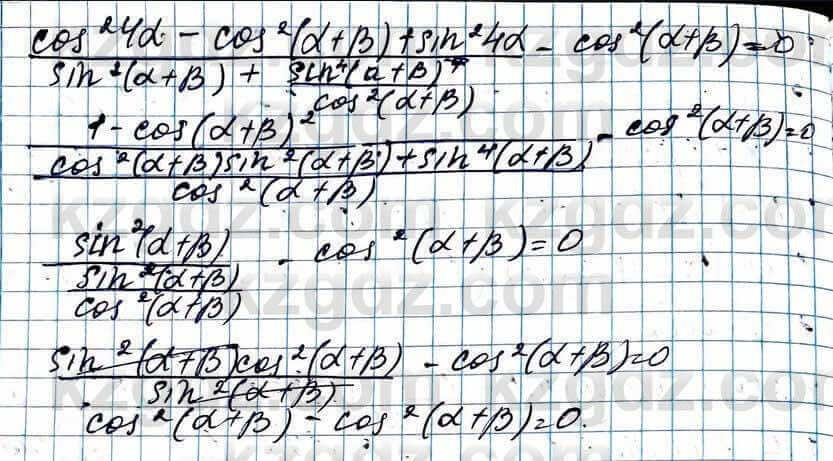 cos²4α - cos²(α+β) + sin²4α / sin²(α+β) + sin⁴(α+β) / cos²(α+β) - cos²(α+β) = 0
1 - cos(α+β)² / cos²(α+β) sin²(α+β) + sin⁴(α+β) / cos²(α+β) - cos²(α+β) = 0
sin²(α+β) / sin²(α+β) / cos²(α+β) - cos²(α+β) = 0
sin²(α+β) cos²(α+β) / sin²(α+β) - cos²(α+β) = 0
cos²(α+β) - cos²(α+β) = 0.
kzgdz.com